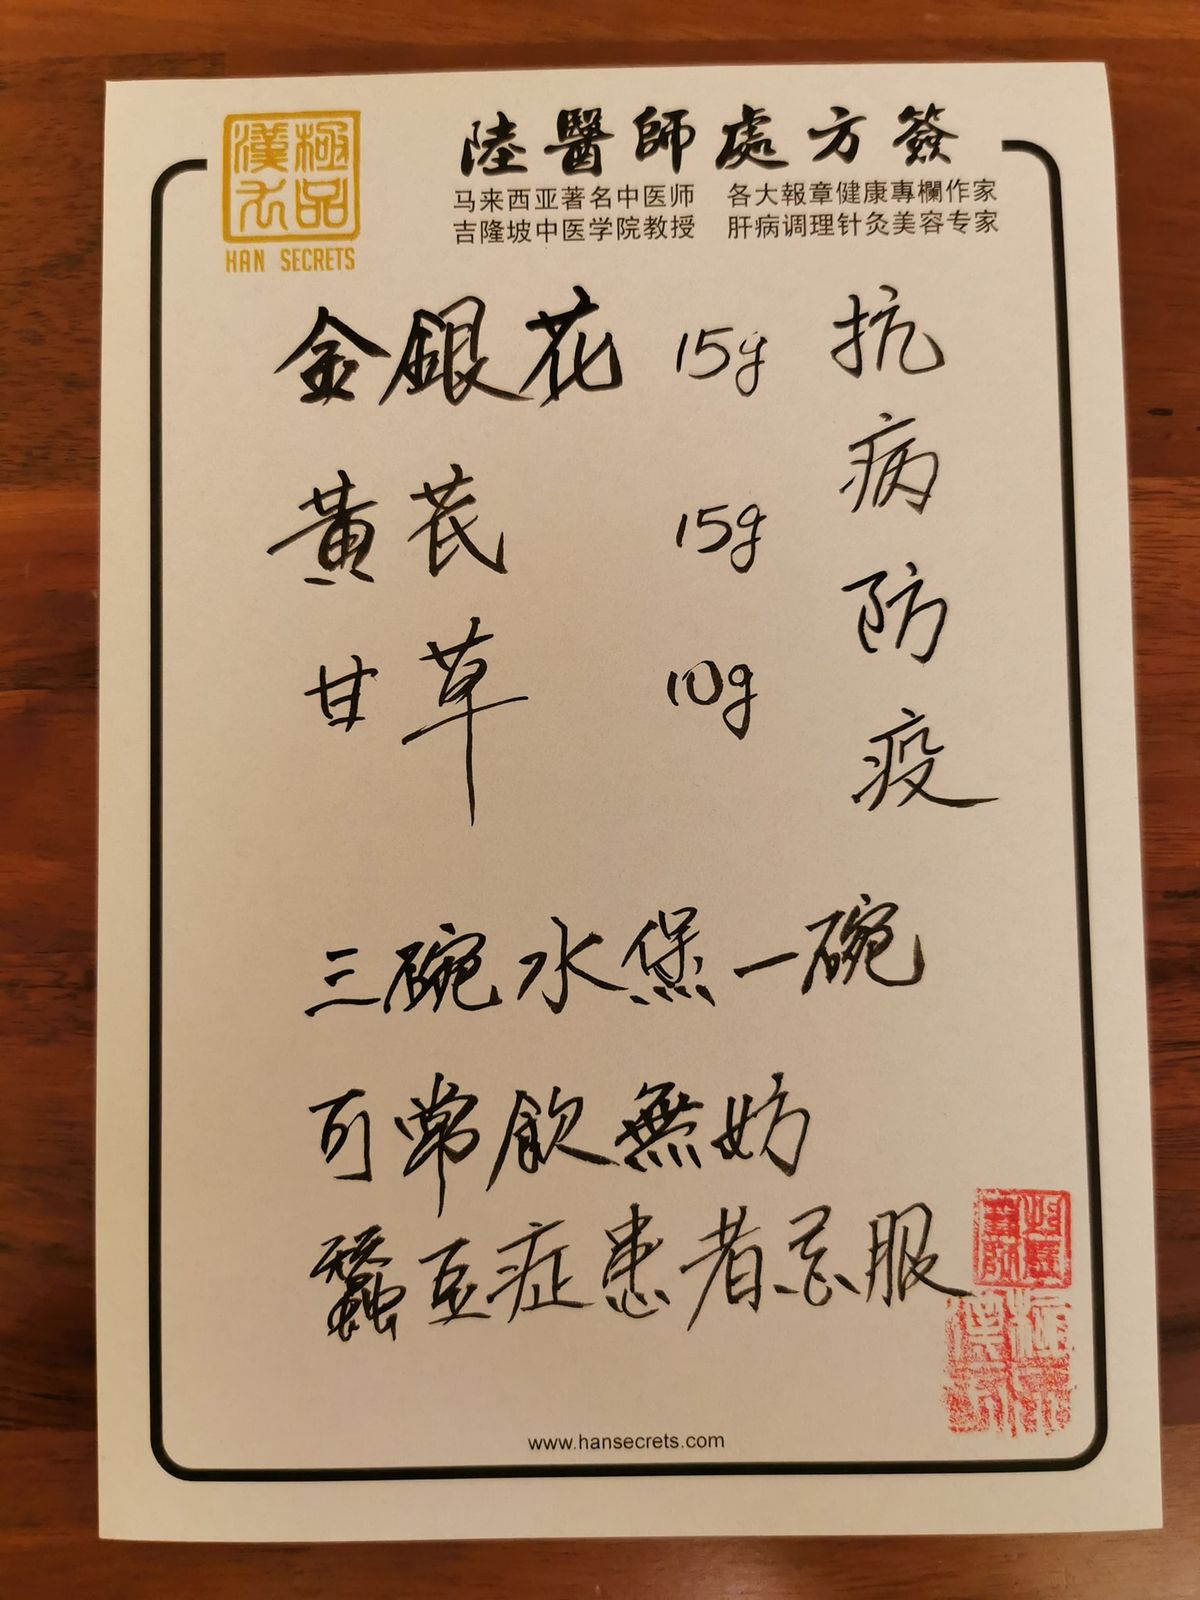 陸醫師處方簽
马来西亚著名中医师 各大報章健康專欄作家
吉隆坡中医学院教授 肝病调理针灸美容专家
極品漢方
HAN SECRETS
金銀花 15g
黃芪 15g
甘草 10g
抗病防疫
三碗水煲一碗
可常飲無妨
蠶豆症患者忌服
www.hansecrets.com